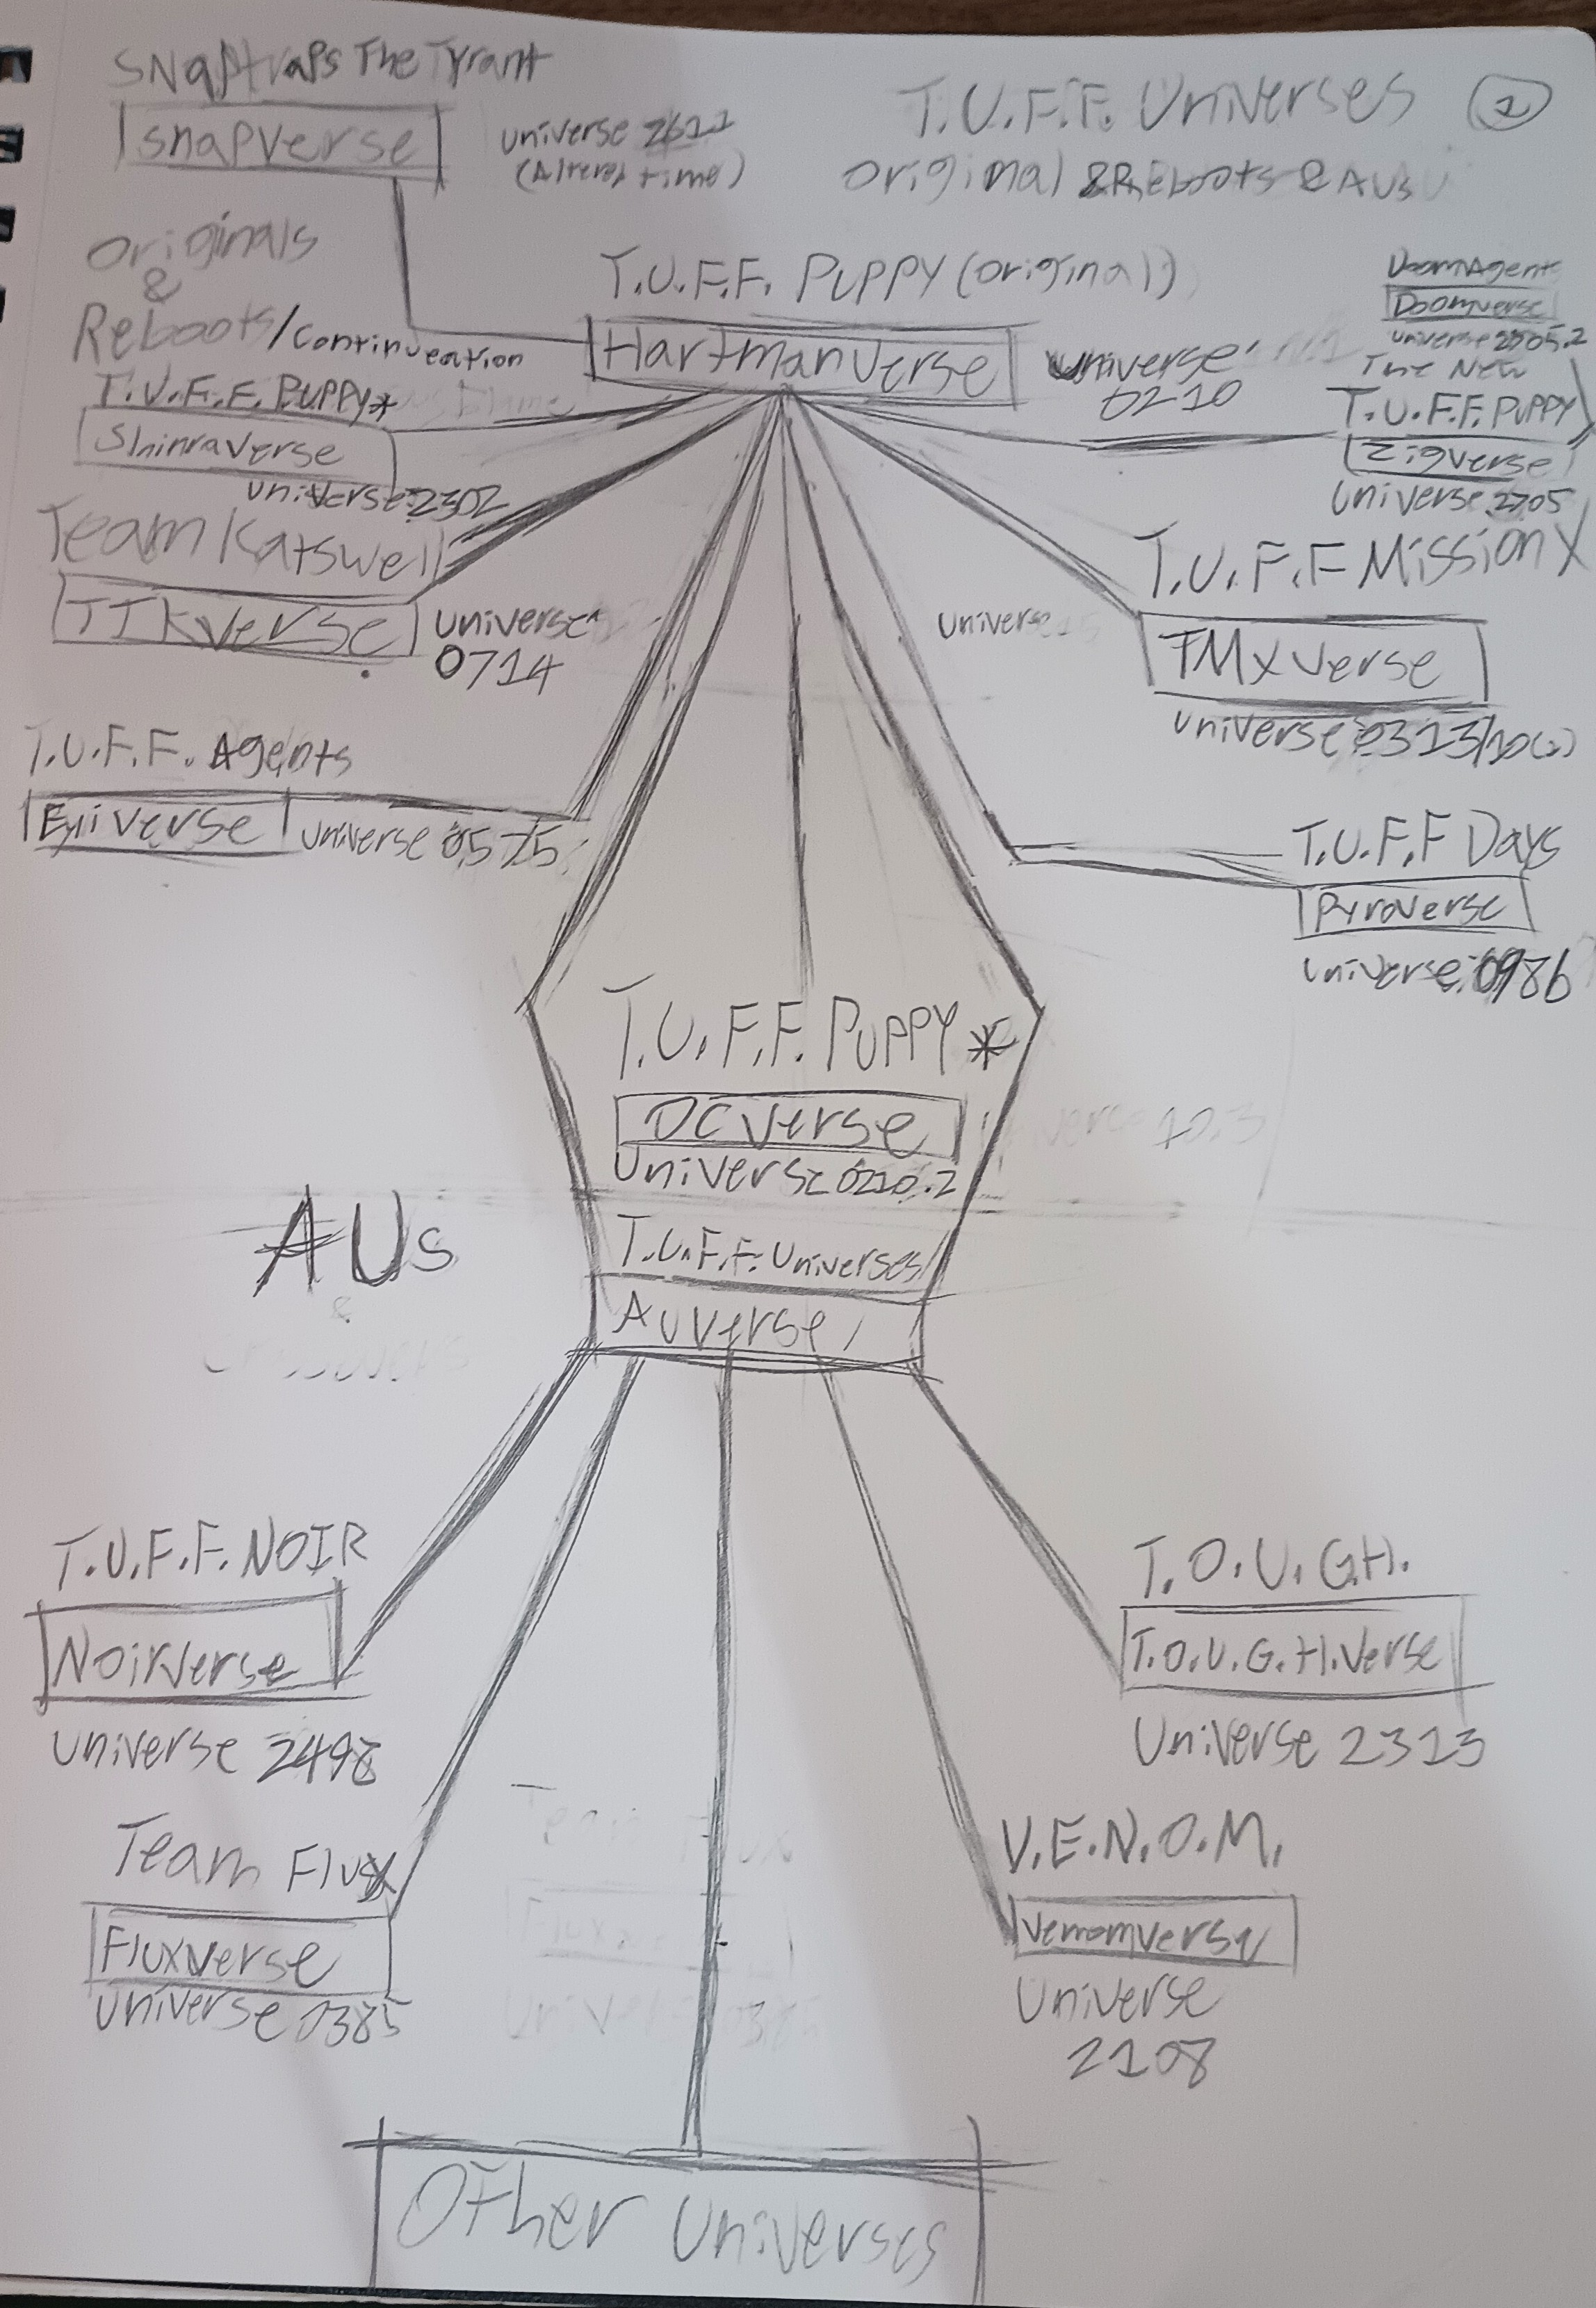 SNaptraps The Tyrant
Snapverse
Universe 2611
(Altered time)
T.U.F.F. Universes
1
Original & Reboots & AUs
Originals
&
Reboots/Continueation
T.U.F.F. Puppy (original)
Hartmanverse
Universe
0210
DoomAgents
Doomverse
Universe 2705.2
The New
T.U.F.F. PUPPY
Zigverse
Universe 2705
T.U.F.F. Puppy*
Shinraverse
Universe 2302
Team Katswell
TTKverse
Universe
0714
T.U.F.F Mission X
TMXverse
Universe 0313/10(2)
Universe
T.U.F.F. Agents
Universe 0575
T.U.F.F Days
Pyroverse
Universe 0986
T.U.F.F. PUPPY *
DCverse
Universe 0210.2
AUs
&
T.U.F.F. Universes
AUverse
T.U.F.F. NOIR
Noirverse
Universe 2498
T.O.U.G.H.
T.O.U.G.H.verse
Universe 2313
Team Flux
Fluxverse
Universe 0385
V.E.N.O.M.
Universe
2108
Other Universes